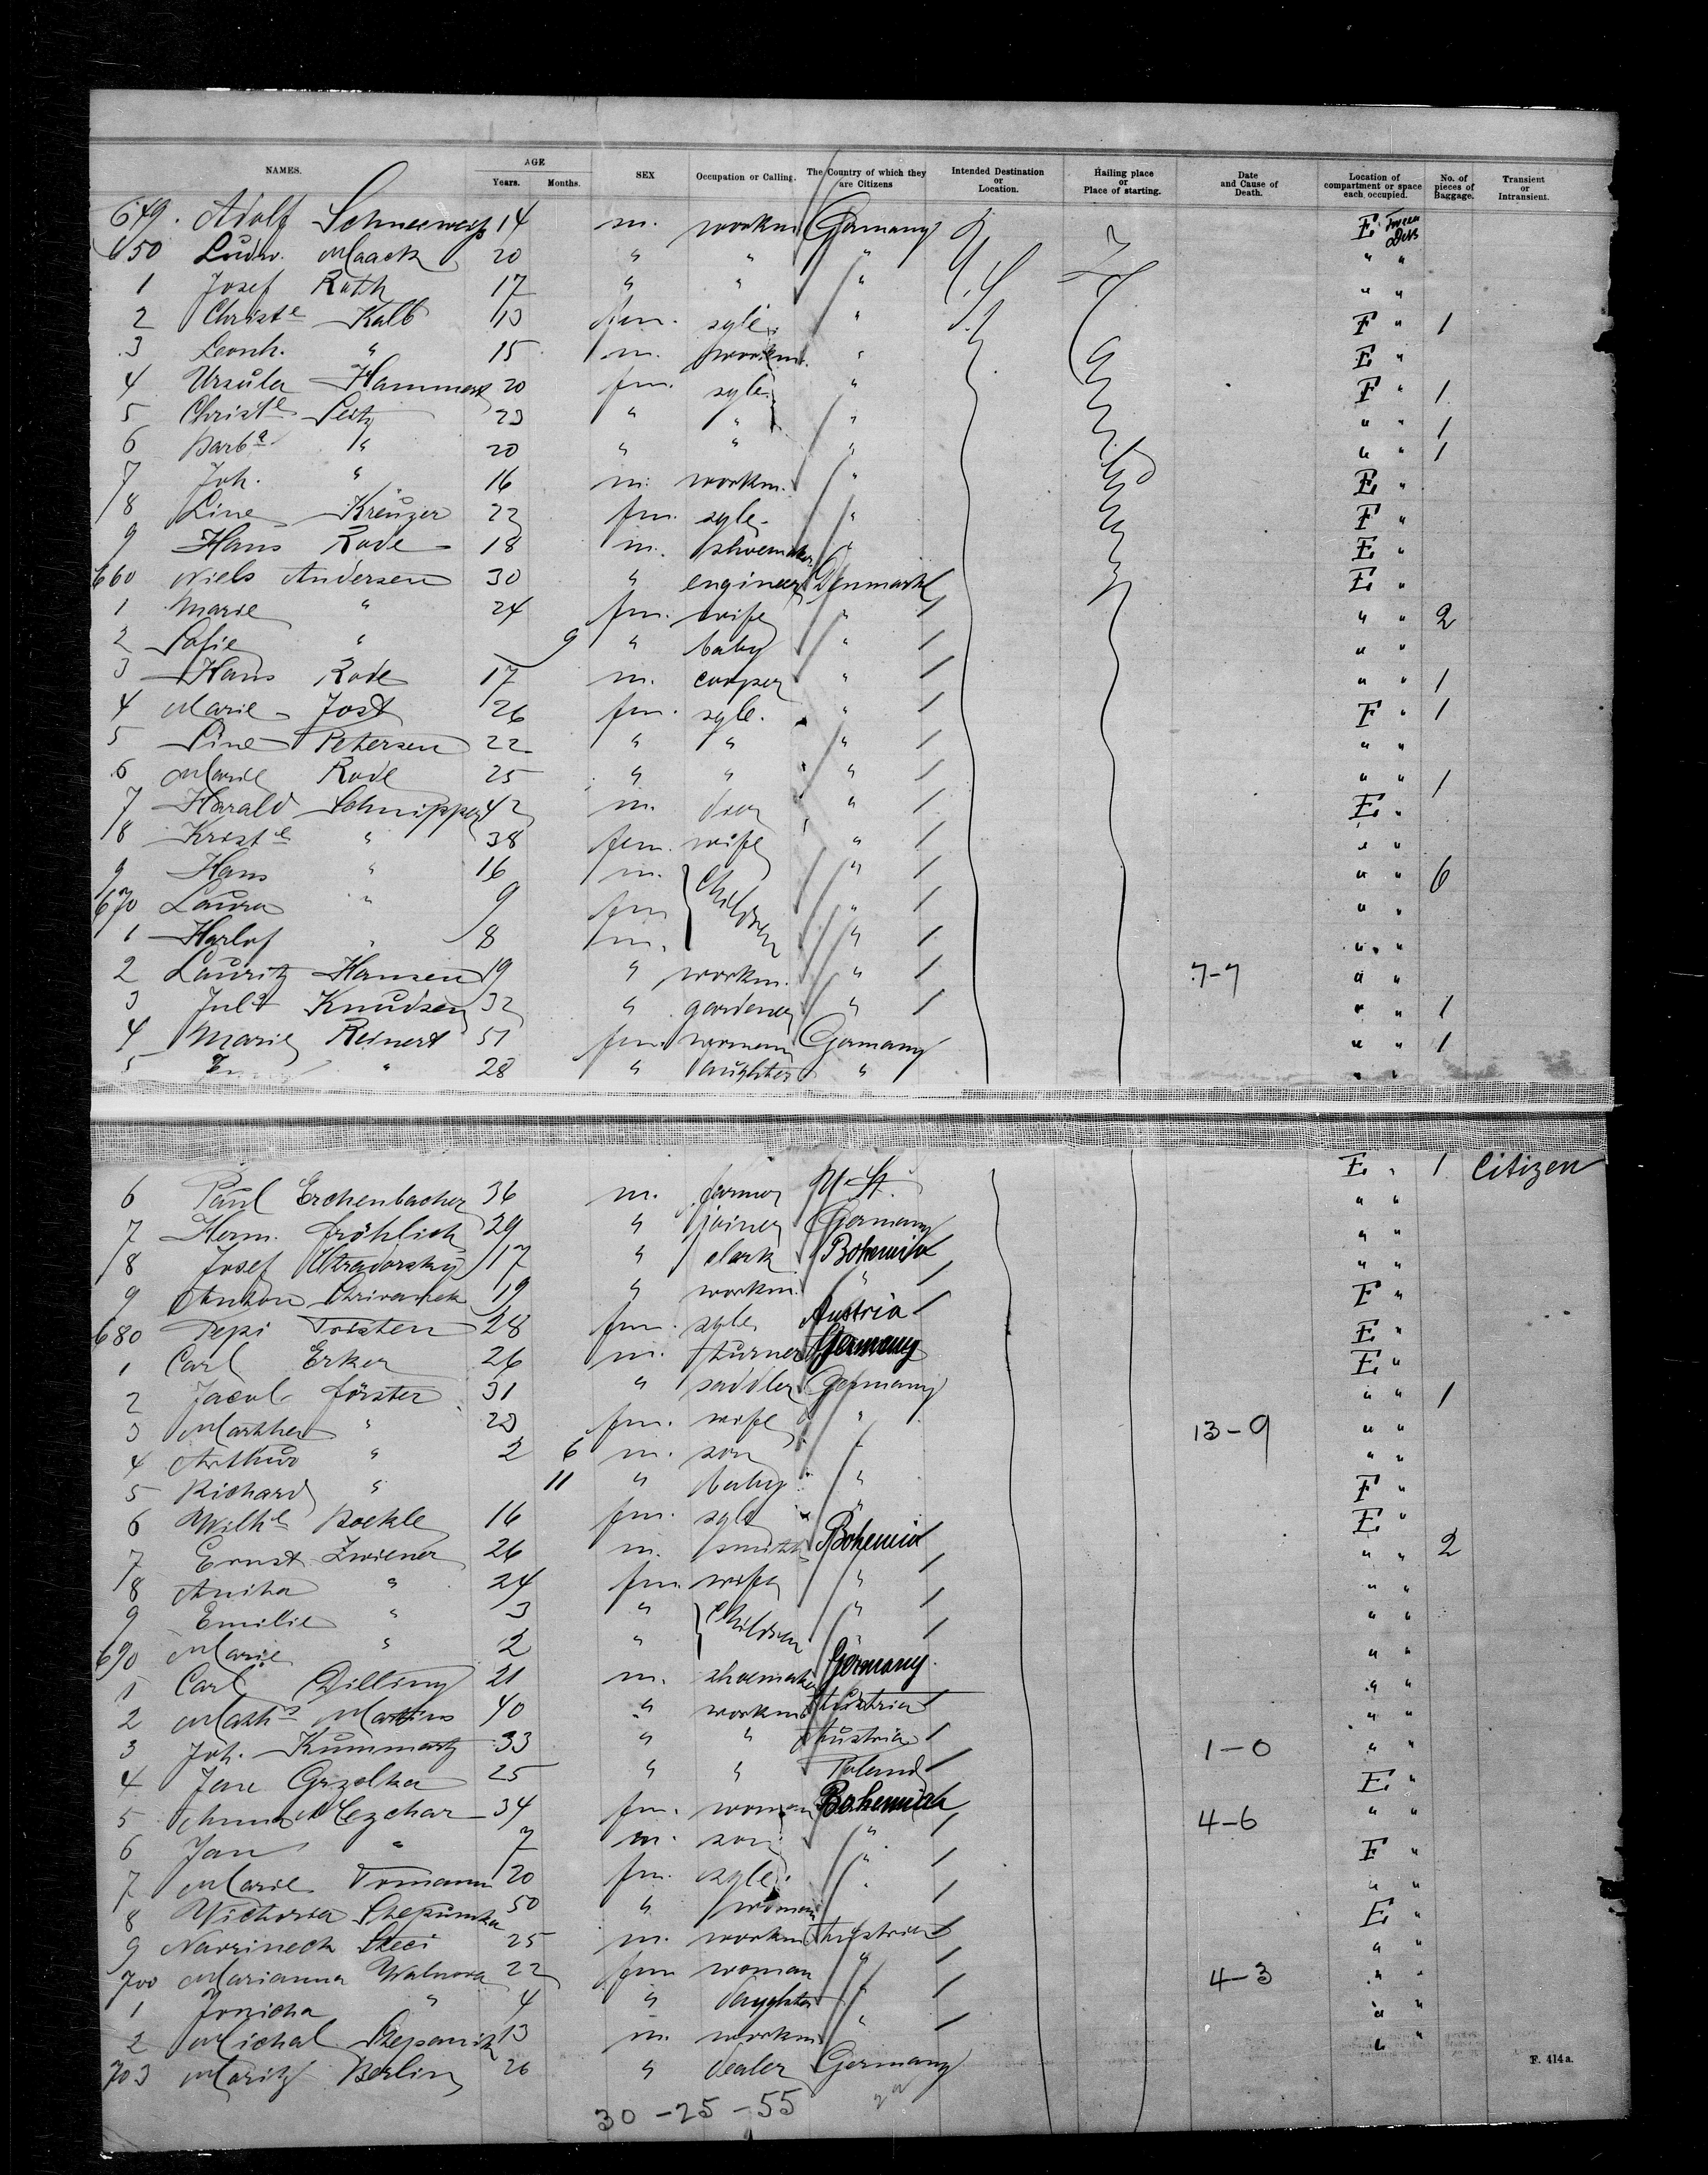 NAMES. AGE Years. Months. SEX Occupation or Calling. The Country of which they are Citizens Intended Destination or Location. Hailing place or Place of starting. Date and Cause of Death. Location of compartment or space each occupied. No. of pieces of Baggage. Transient or Intransient.
649. Adolf Schneeweiss 14 m. workm Germany E.
650 Ludw. Maack 20 " " " " "
1 Josef Roth 17 " " " " "
2 Christe Kalb 13 fem. sgle. " F " 1
3 Leonh. " 15 m. workm. " E "
4 Ursula 20 fm. sgle. " F " 1
5 Christe Seitz 23 " " " " " 1
6 Barba " 20 " " " " " 1
7 Joh. " 16 m. workm. " E "
8 Line Kreuzer 22 fm. sgle. " F "
9 Hans Rode 18 m. shoemaker " E "
660 Niels Andersen 30 " engineer Denmark E "
1 Marie " 24 fm. wife " " " 2
2 Sofie " 9 " baby " " "
3 Hans Rode 17 m. cooper " " " 1
4 Marie Jost 26 fm. sgle. " F " 1
5 Sine Petersen 22 " " " " "
6 Marie Rode 25 " " " " " 1
7 Harald Schnipper 42 m. " E "
8 Kriste " 38 fem. wife " " "
9 Hans " 16 m. Children " " " 6
670 Laura " 9 fm " " "
1 Harlof " 8 fm. " " "
2 Lauritz Hansen 19 " workm. " 7-7 " "
3 Juls Knudsen 32 " gardener " " " 1
4 Marie Reinert 51 fm. woman Germany " " 1
5 " 28 " daughter " " "
6 Paul Erchenbacher 36 m. farmer U. St. E " 1 Citizen
7 Herm. Fröhlich 29 " joiner Germany " "
8 Josef 17 " clerk Bohemia " "
9 Anton 19 " workm. " " "
680 Pepi Toisten 28 fm. sgle. Austria F "
1 Carl Erker 26 m. turner Germany E "
2 Jacob Förster 31 " saddler Germany E "
3 Martha " 23 fm. wife " 13-9 " " 1
4 Arthur " 2 6 m. son " " "
5 Richard " 11 " baby " " "
6 Wilhe Boekle 16 fm. sgle " F "
7 Ernst Zwiener 26 m. smith Bohemia E "
8 Anna " 24 fm. wife " " " 2
9 Emilie " 3 " Children " " "
690 Marie " 2 " " " "
1 Carl Dilling 21 m. shoemaker Germany " "
2 Maths Martins 40 " workm Austria " "
3 Joh. Kummartz 33 " " Austria " "
4 Jan Grzelka 25 " " Poland 1-0 " "
5 Anna 34 fm. woman Bohemia E "
6 Jan " 7 m. son " 4-6 " "
7 Marie Tomann 20 fm. sgle. " F "
8 Victoria 50 " woman " "
9 25 m. workm Austria E "
700 Marianna 22 fm woman " " "
1 " 4 " daughter " 4-3 " "
2 Michal 13 m. workm " " "
703 Moritz Berlin 26 " dealer Germany " "
30-25-55
F. 414 a.